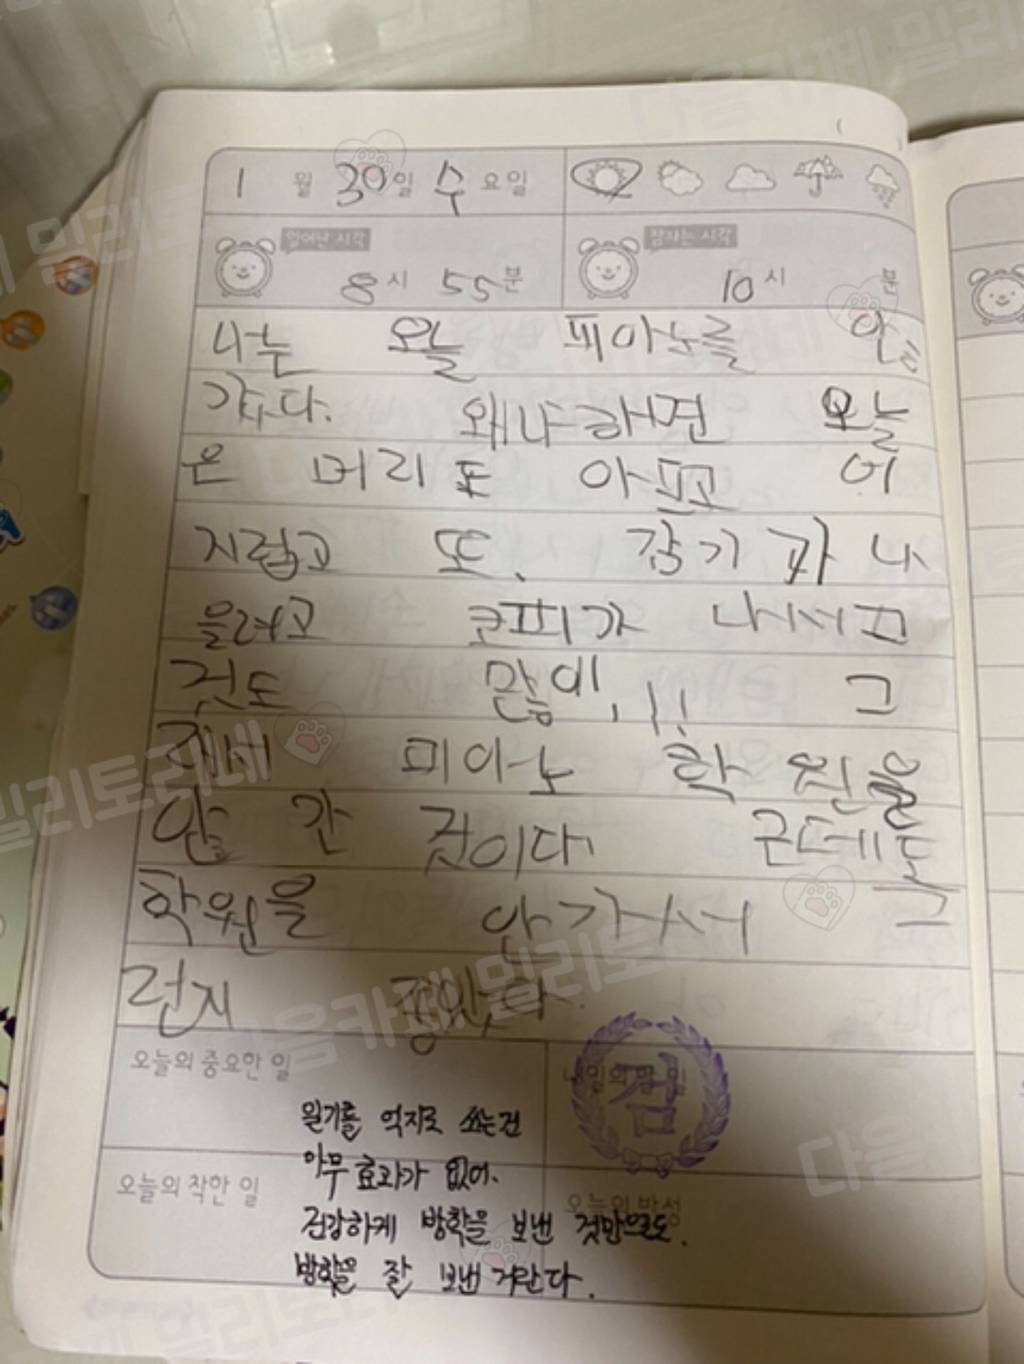 1 월 30 일 수 요일
일어난 시각 잠자는 시각
8 시 55 분 10 시 분
나는 오늘 피아노를 안
갔다. 왜냐하면 오늘
은 머리도 아프고 어
지럽고 또, 감기
을려고 코피가 나서
것도 많이!!! 그
래서 피아노 학원을
안 간 것이다. 근데도
학원을 안가서 그
런지
오늘의 중요한 일
일기를 억지로 쓰는건
아무 효과가 없어.
오늘의 착한 일 오늘의 반성
건강하게 방학을 보낸 것만으로도.
방학을 잘 보낸 거란다.
검
다음카페 밀리토리네